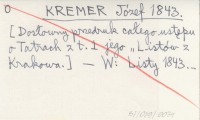 O KREMER Józef 1843.
[Dosłowny przedruk całego ustępu
o Tatrach z t. I jego „Listów z
Krakowa.] — W: Listy 1843...